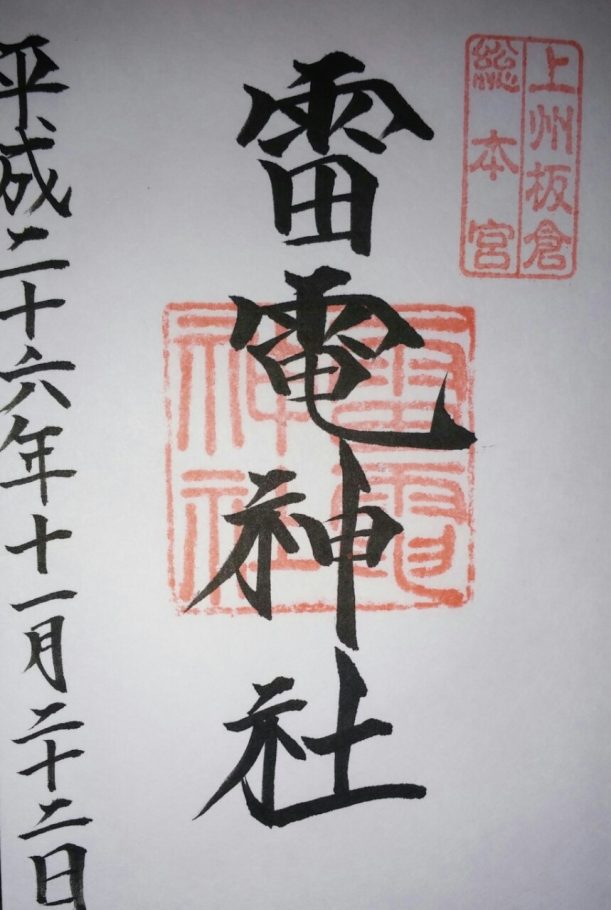 上州板倉
総本宮
雷電神社
雷電
神社
平成二十六年十一月二十二日